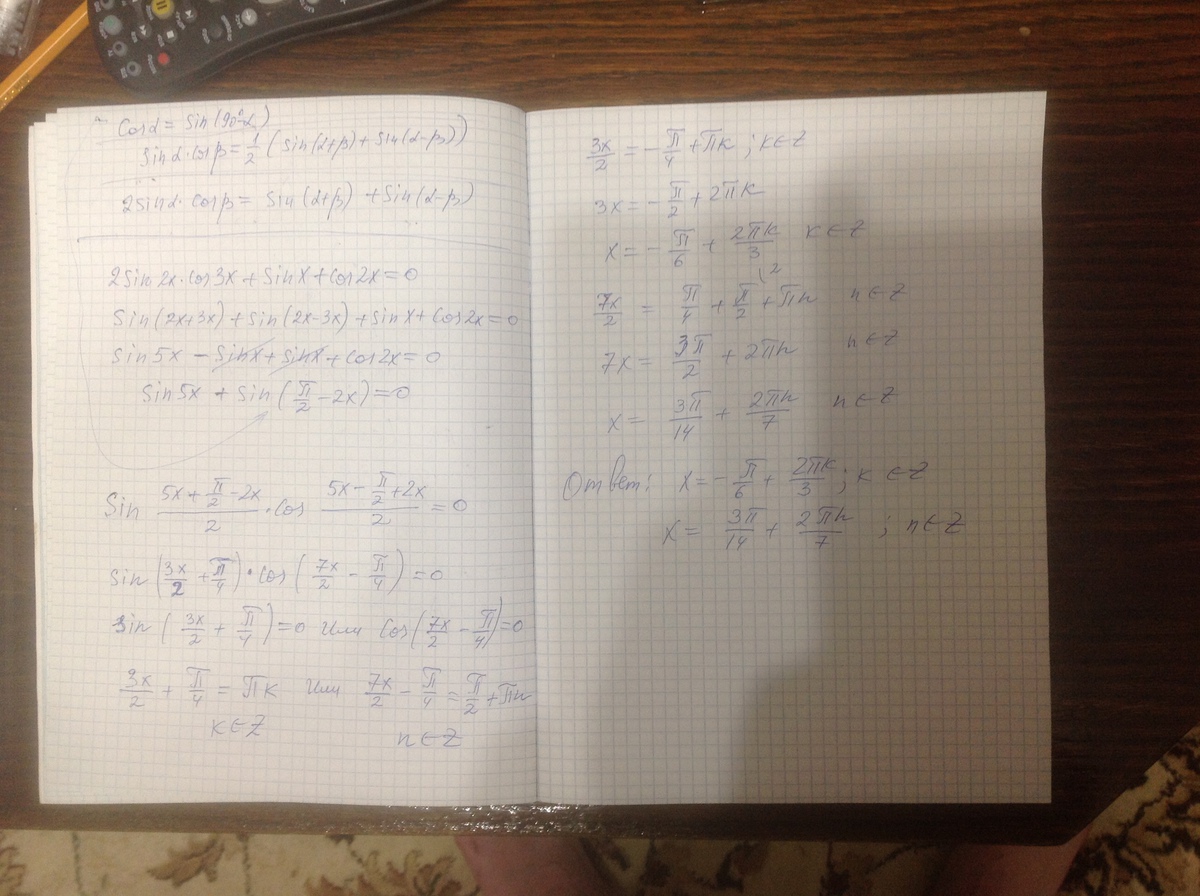 Cosα = Sin(90°-α)
Sinα·Cosβ = 1/2 (Sin(α+β) + Sin(α-β))
2Sinα·Cosβ = Sin(α+β) + Sin(α-β)
2Sin2x·Cos3x + Sinx + Cos2x = 0
Sin(2x+3x) + Sin(2x-3x) + Sinx + Cos2x = 0
Sin5x - Sinx + Sinx + Cos2x = 0
Sin5x + Sin(π/2 - 2x) = 0
Sin (5x + π/2 - 2x)/2 · Cos (5x - π/2 + 2x)/2 = 0
Sin(3x/2 + π/4) · Cos(7x/2 - π/4) = 0
Sin(3x/2 + π/4) = 0 или Cos(7x/2 - π/4) = 0
3x/2 + π/4 = πk или 7x/2 - π/4 = π/2 + πn
k∈Z n∈Z
3x/2 = -π/4 + πk ; k∈Z
3x = -π/2 + 2πk
x = -π/6 + 2πk/3 k∈Z
7x/2 = π/4 + π/2 (2 + πn n∈Z
7x = 3π/2 + 2πn n∈Z
x = 3π/14 + 2πn/7 n∈Z
Ответ: x = -π/6 + 2πk/3 ; k∈Z
x = 3π/14 + 2πn/7 ; n∈Z